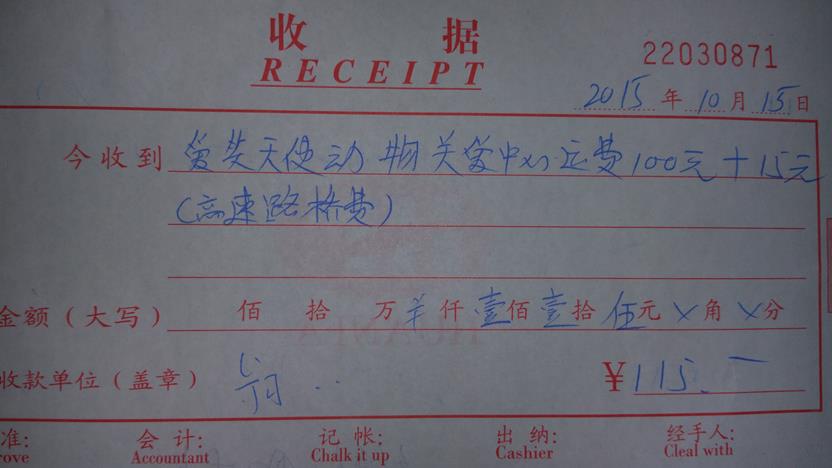 收 据
RECEIPT
22030871
2015 年 10 月 15 日
今收到 爱芬天使动物关爱中心运费100元+15元
(高速路桥费)
金额(大写) 佰 拾 万 羊 仟 壹 佰 壹 拾 伍 元 X 角 X 分
收款单位(盖章) ¥115.一
准: 会 计: 记 帐: 出 纳: 经手人:
rove Accountant Chalk it up Cashier Cleal with